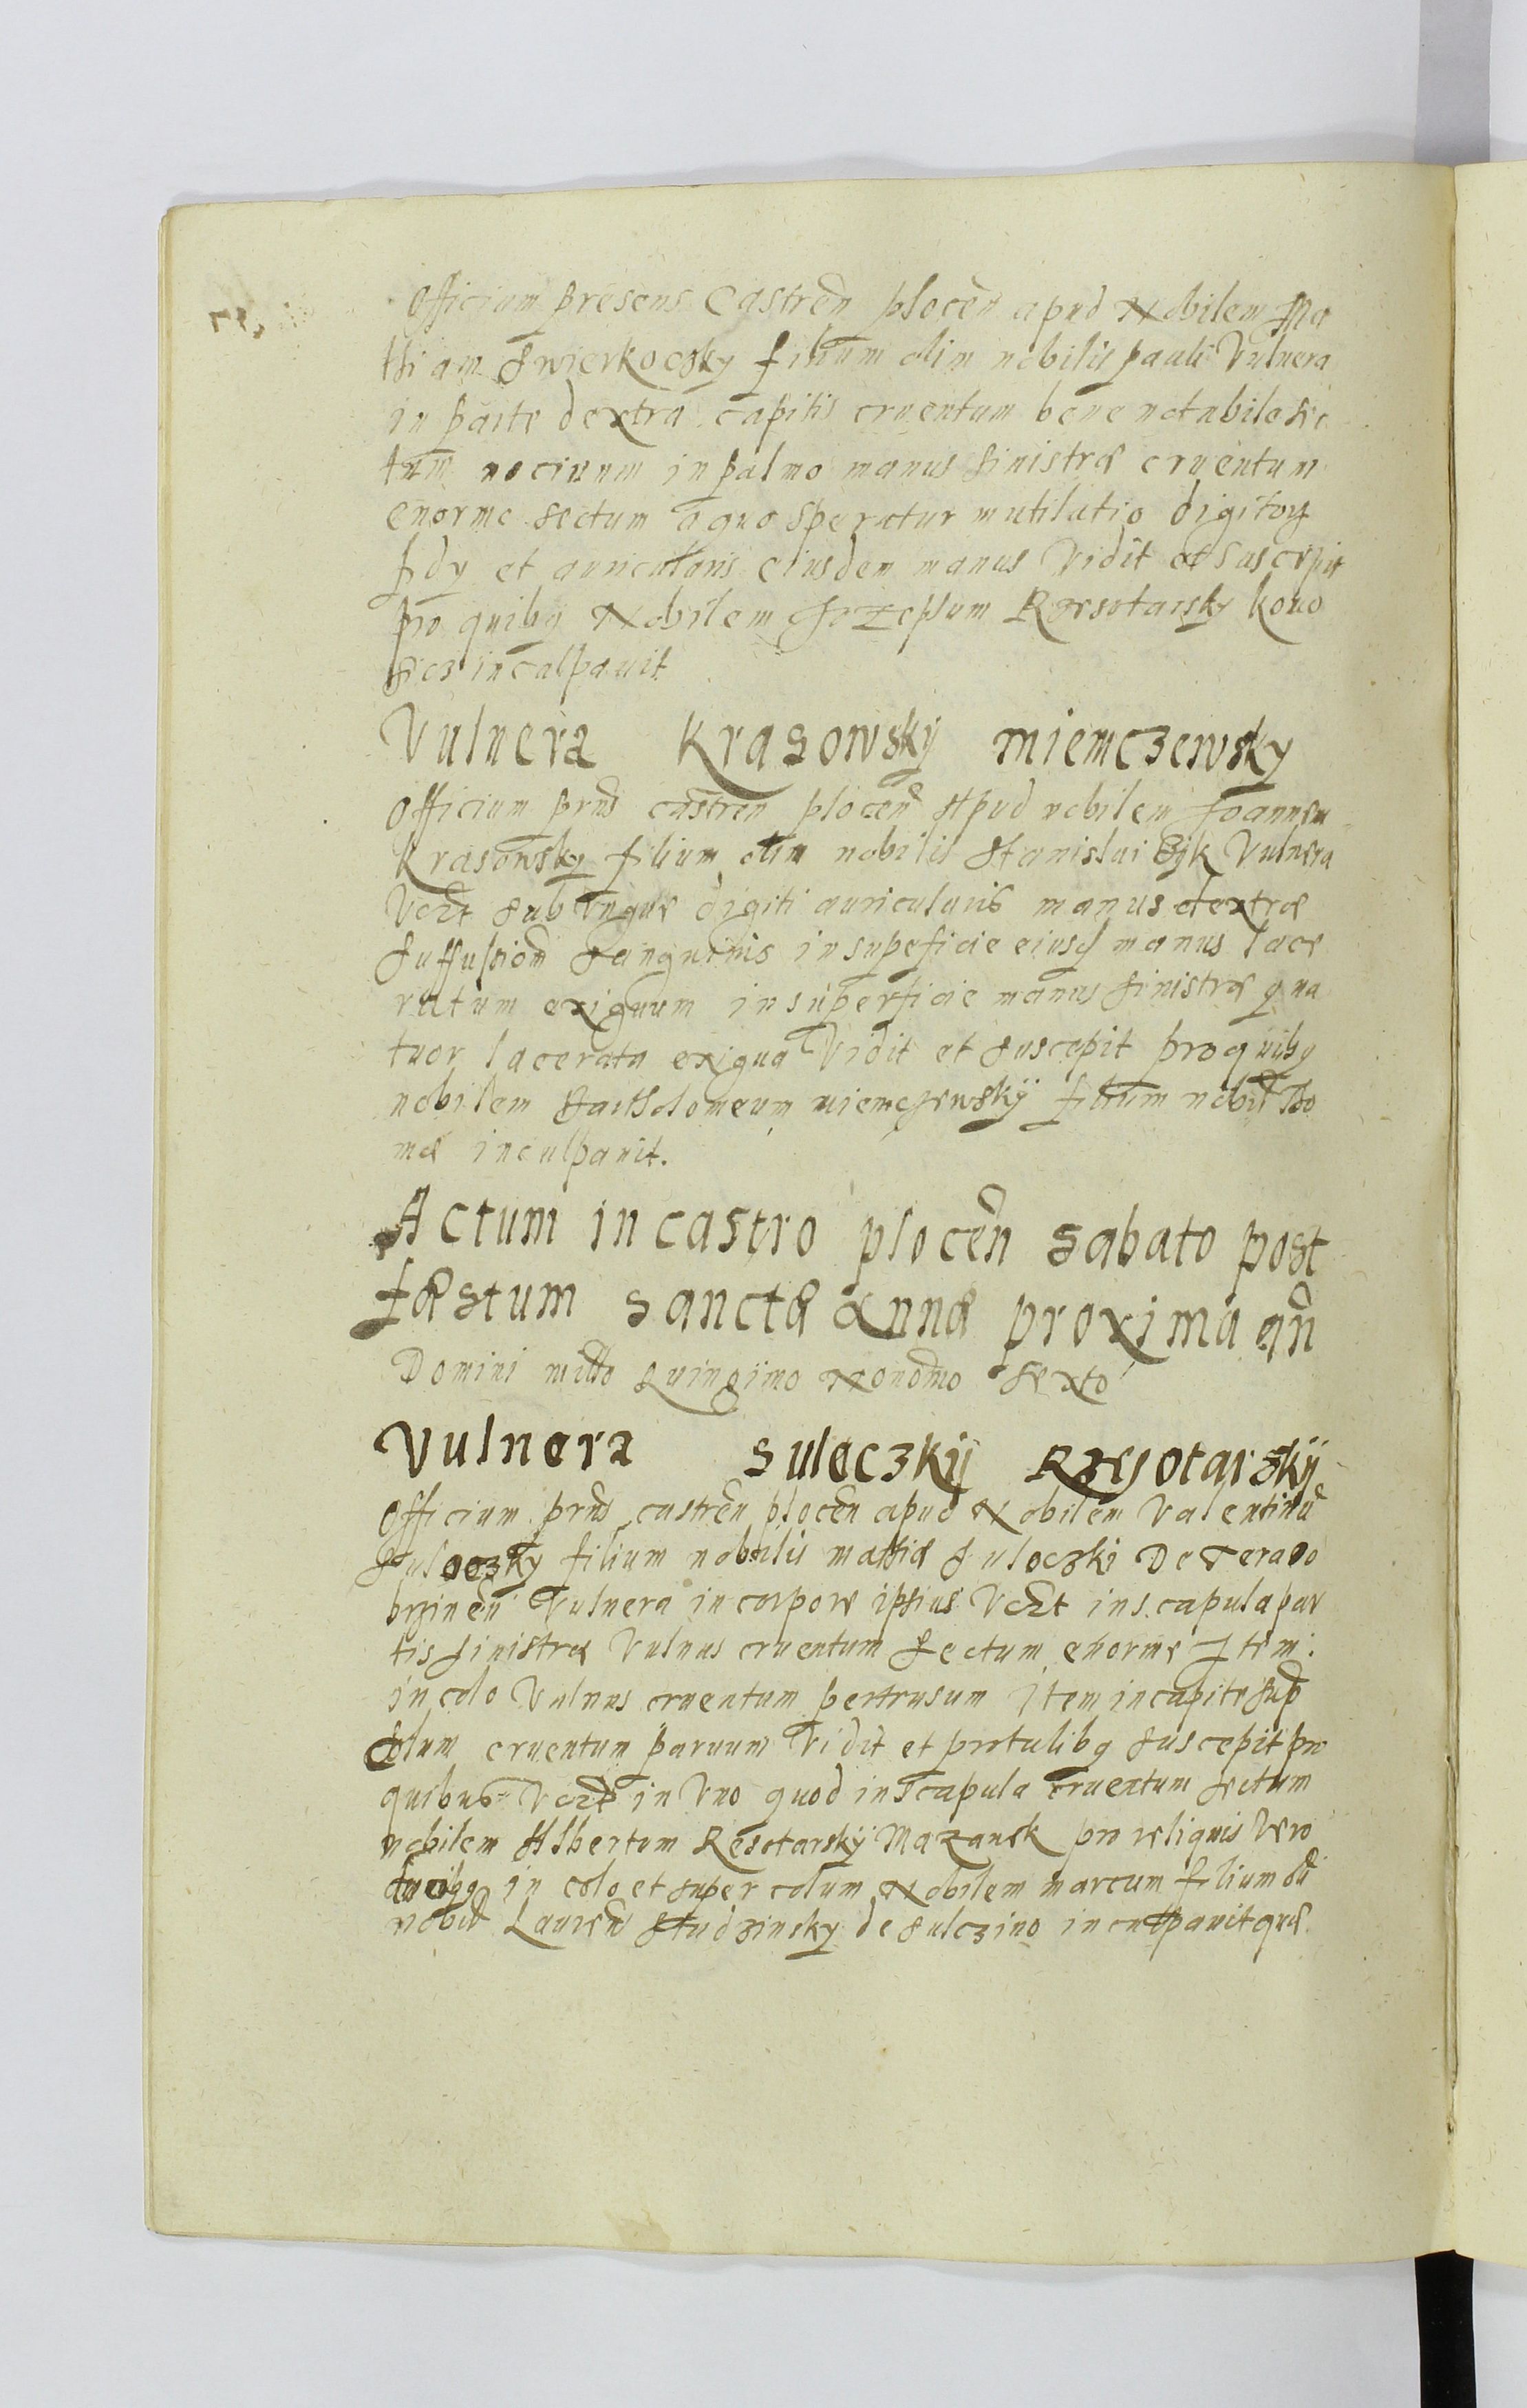 Officium presens Castren plocen apud Nobilem Ma
thiam Swierkoczky filium olim nobilis pauli Vulnera
in parte dextra capitis cruentum bene notabile sec
tum nociuum in palmo manus sinistræ cruentum
enorme sectum a quo speratur mutilatio digitor
et auricularis eiusdem manus Vidit et suscepit
pro quibus Nobilem Jozephum Rzesotarsky kono
inculpauit
Vulnera Krasowskÿ miemczewsky
Officium prns castren plocen Apud nobilem Joannem
Krasowsky filium olim nobilis Stanislai Vulnera
Vczt sub ungue digiti auricularis manus dextræ
suffusiom sanguinis in supeficie eiusd manus lace
ratum exiguum in superficie manus sinistræ qua
tuor lacerata exigua Vidit et suscepit pro quibus
nobilem Bartholomeum miemczewskÿ filium nobil Tho
mæ inculpauit.
Actum in castro plocen sabato post
fæstum sanctæ Annæ proxima an
Domini millo Quingimo Nonomo sexto
Vulnera suleczkÿ Rzesotarskÿ
Officium prns castren plocen apud Nobilem Valentinu
suloczky filium nobilis mathiæ suloczki De
brzinen Vulnera in corpore ipsius Vczt in scapula par
tis sinistræ Vulnus cruentum sectum enorme Item
in colo Vulnus cruentum pertrusum Item in capite sup
colum cruentum paruum Vidit et suscepit pro
quibus Vczt in Vno quod in scapula cruentum sectum
nobilem Albertum Resotarskÿ Mazanek pro reliquis Vero
in colo et super colum Nobilem marcum filium
nobil Lauren Studzinsky de sulczino inculpauit quæ